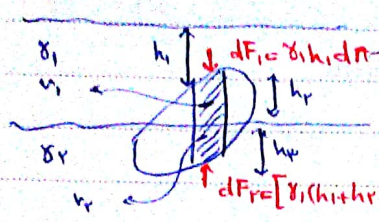 γ₁ h₁ dF₁=γ₁h₁dπ-
v₁ h₂
γ₂ h₃
v₂ dF₂=[γ₁(h₁+h₂